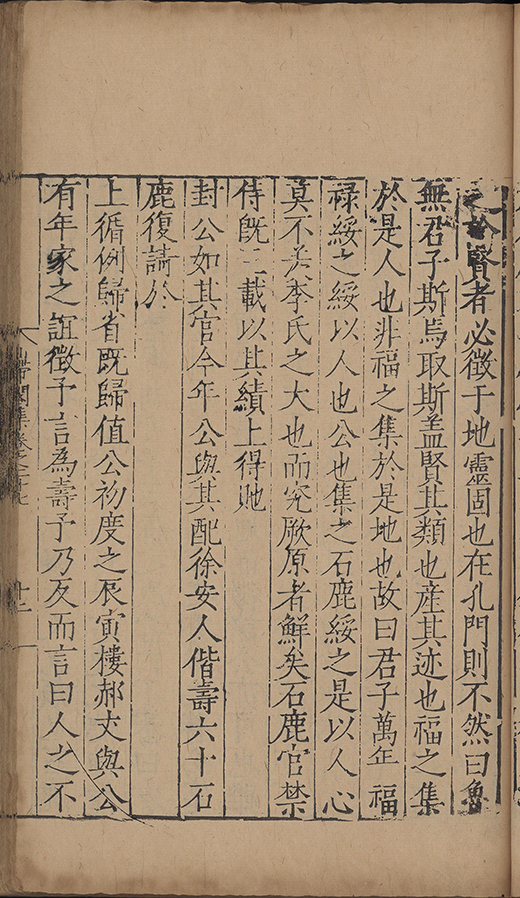 之於賢者必徵于地靈固也在孔門則不然曰魯
無君子斯焉取斯盖賢其類也産其迹也福之集
於是人也非福之集於是地也故曰君子萬年福
祿綏之綏以人也公也集之石鹿綏之是以人心
莫不羙李氏之大也而究厥原者鮮矣石鹿官禁
侍旣二載以其績上得貤
封公如其官今年公與其配徐安人偕壽六十石
鹿復請於
上循例歸省既歸值公初度之辰寅樓郝丈與公
有年家之誼徵予言為壽予乃友而言曰人之不
閣集卷之十七
十二